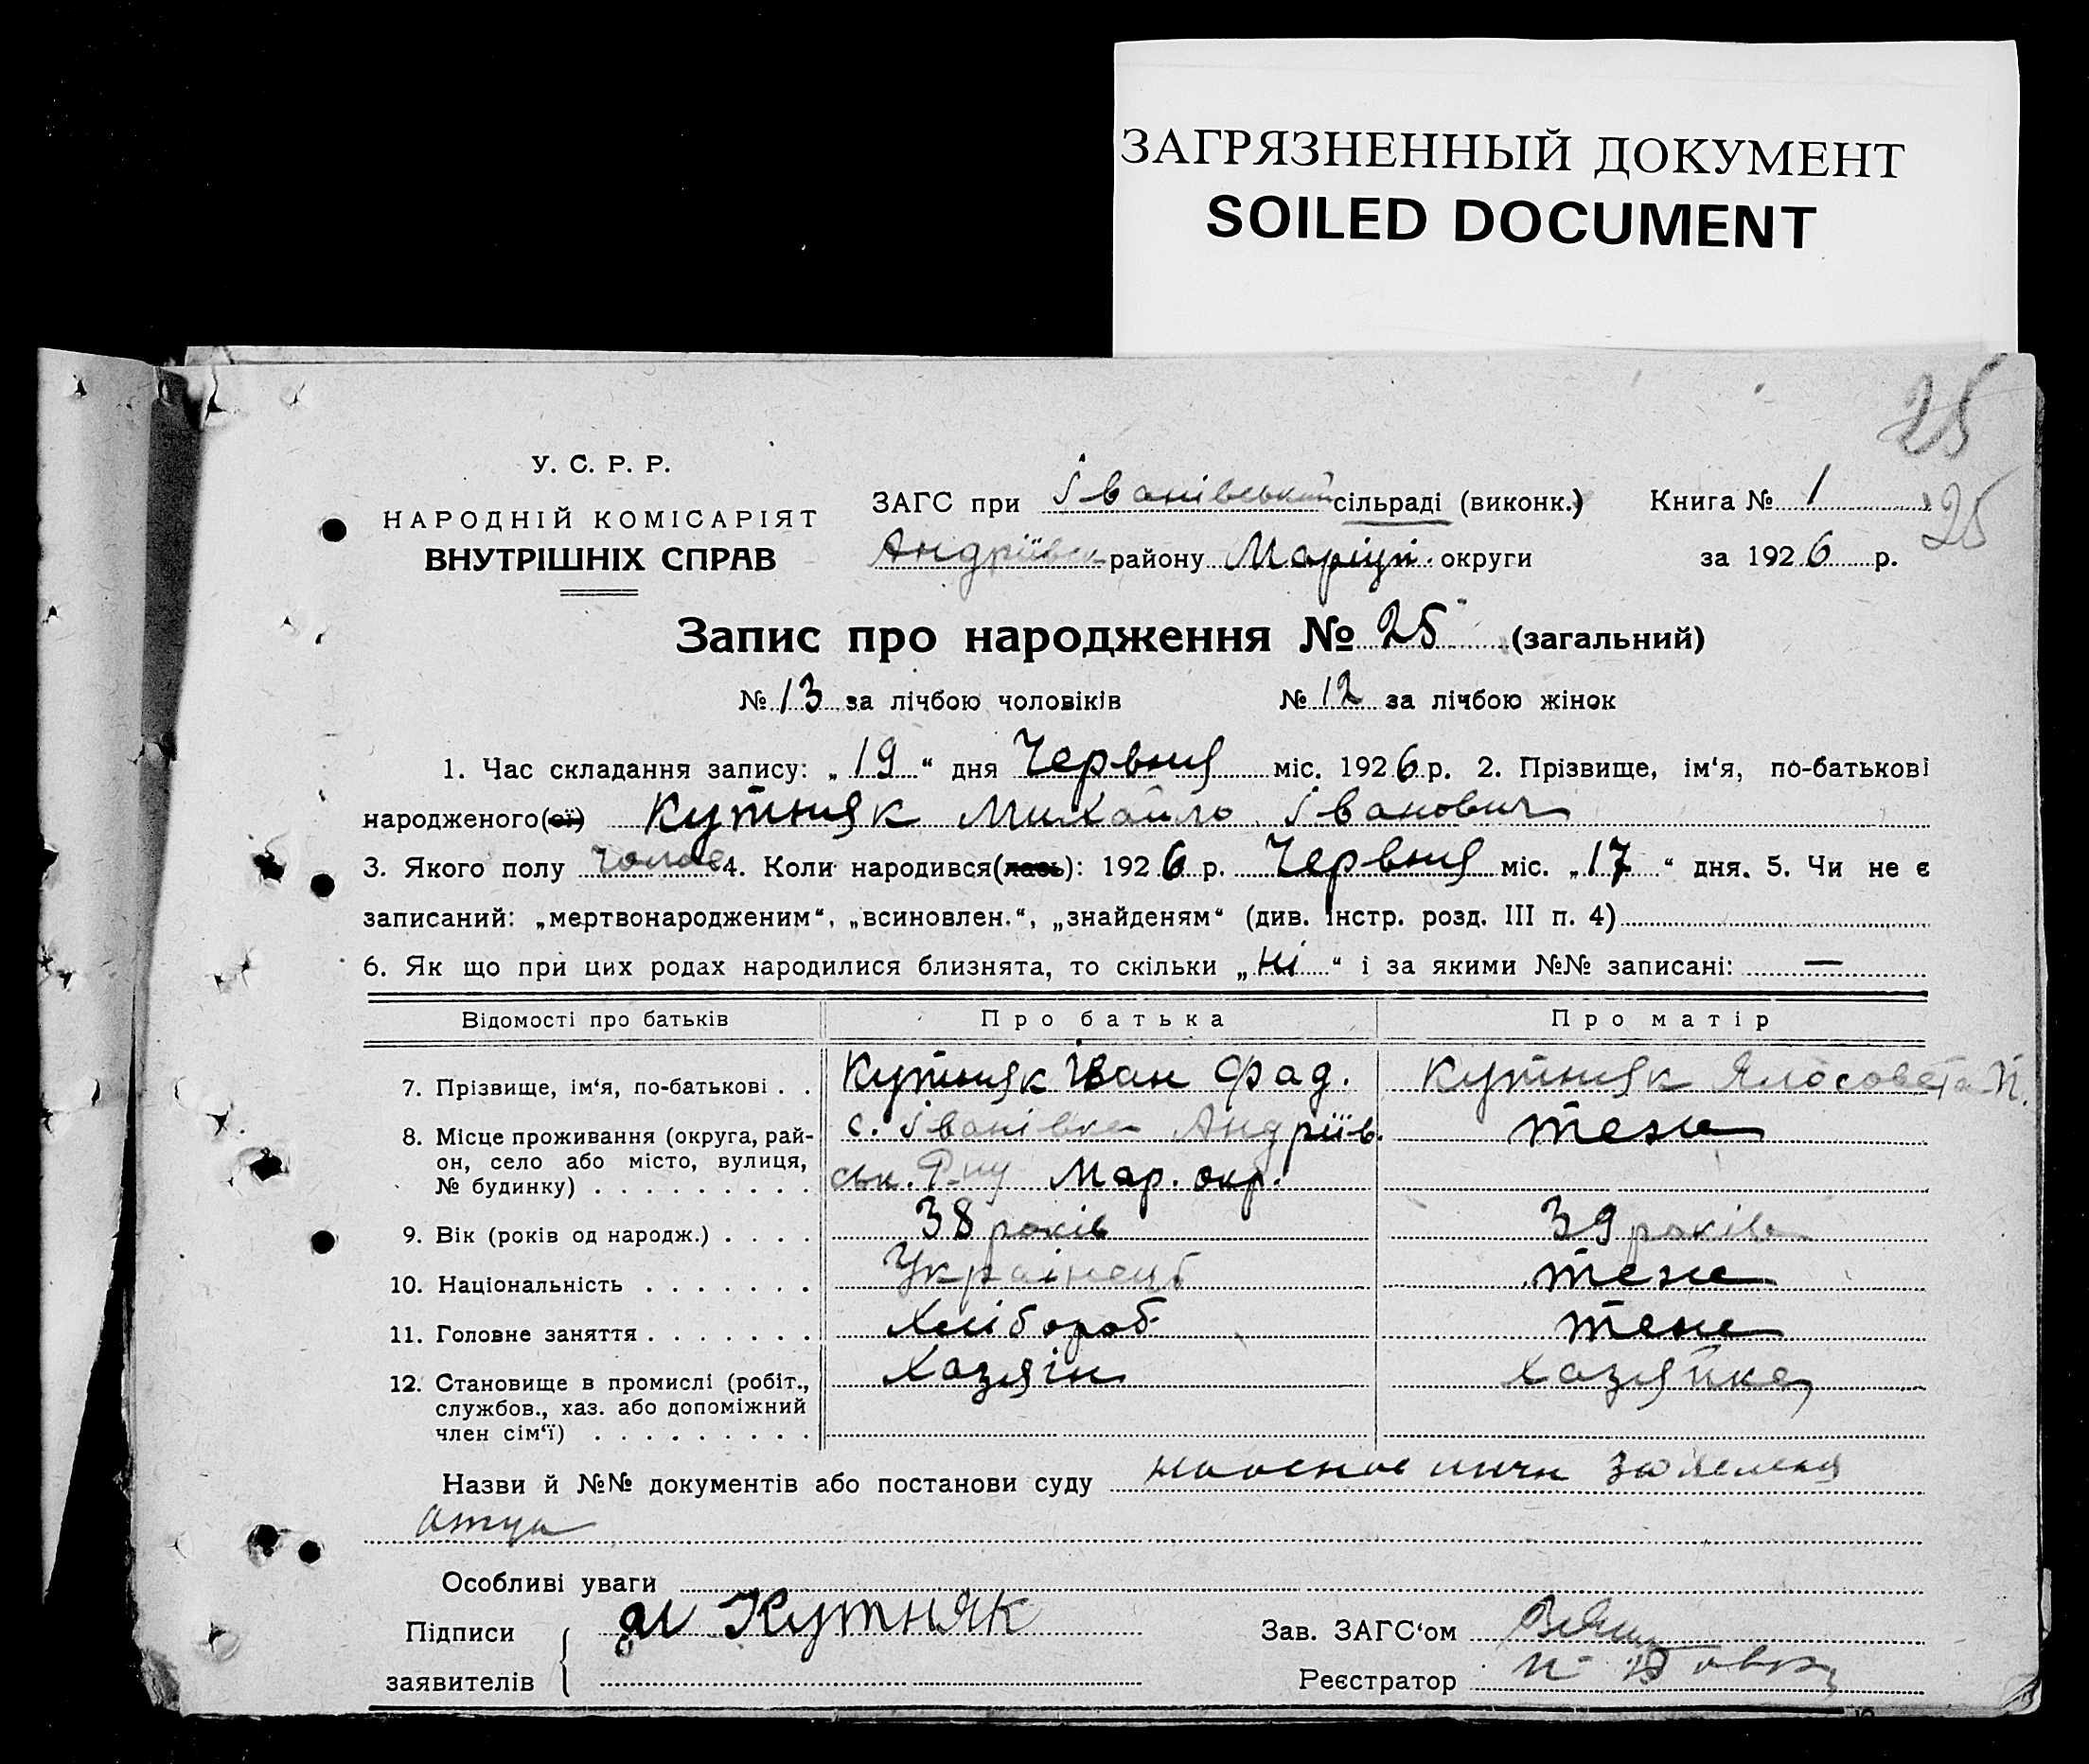 ЗАГРЯЗНЕННЫЙ ДОКУМЕНТ
SOILED DOCUMENT
25
У. С. Р. Р.
НАРОДНІЙ КОМІСАРІЯТ
ВНУТРІШНІХ СПРАВ
ЗАГС при Іванівській сільраді (виконк.) Книга № 1 25
Андріївск району Маріуп. округи за 1926 р.
Запис про народження № 25 (загальний)
№ 13 за лічбою чоловіків № 12 за лічбою жінок
1. Час складання запису: „19“ дня Червня міс. 1926 р. 2. Прізвище, ім‘я, по-батькові
народженого(ої) Кутняк Михайло Іванович
3. Якого полу чолов 4. Коли народився(лась): 1926 р. Червня міс. „17“ дня. 5. Чи не є
записаний: „мертвонародженим“, „всиновлен.“, „знайденям“ (див. Інстр. розд. III п. 4)
6. Як що при цих родах народилися близнята, то скільки „ні“ і за якими №№ записані: —
Відомості про батьків Про батька Про матір
7. Прізвище, ім‘я, по-батькові . . Кутняк Іван Фад. Кутняк Ялосовета П.
8. Місце проживання (округа, рай- с. Іванівка Андріїв. теж
он, село або місто, вулиця, ськ. Р-ну Мар. окр.
№ будинку) . . . . . . . . .
9. Вік (років од народж.) . . . . 38 років 39 років
10. Національність . . . . . . . Українець теж
11. Головне заняття . . . . . . . Хлібороб теж
12. Становище в промислі (робіт., Хазяїн хазяйка
службов., хаз. або допоміжний
член сім‘ї) . . . . . . . . .
Назви й №№ документів або постанови суду
отця
Особливі уваги
Підписи Кутняк Зав. ЗАГС‘ом
заявителів Реєстратор